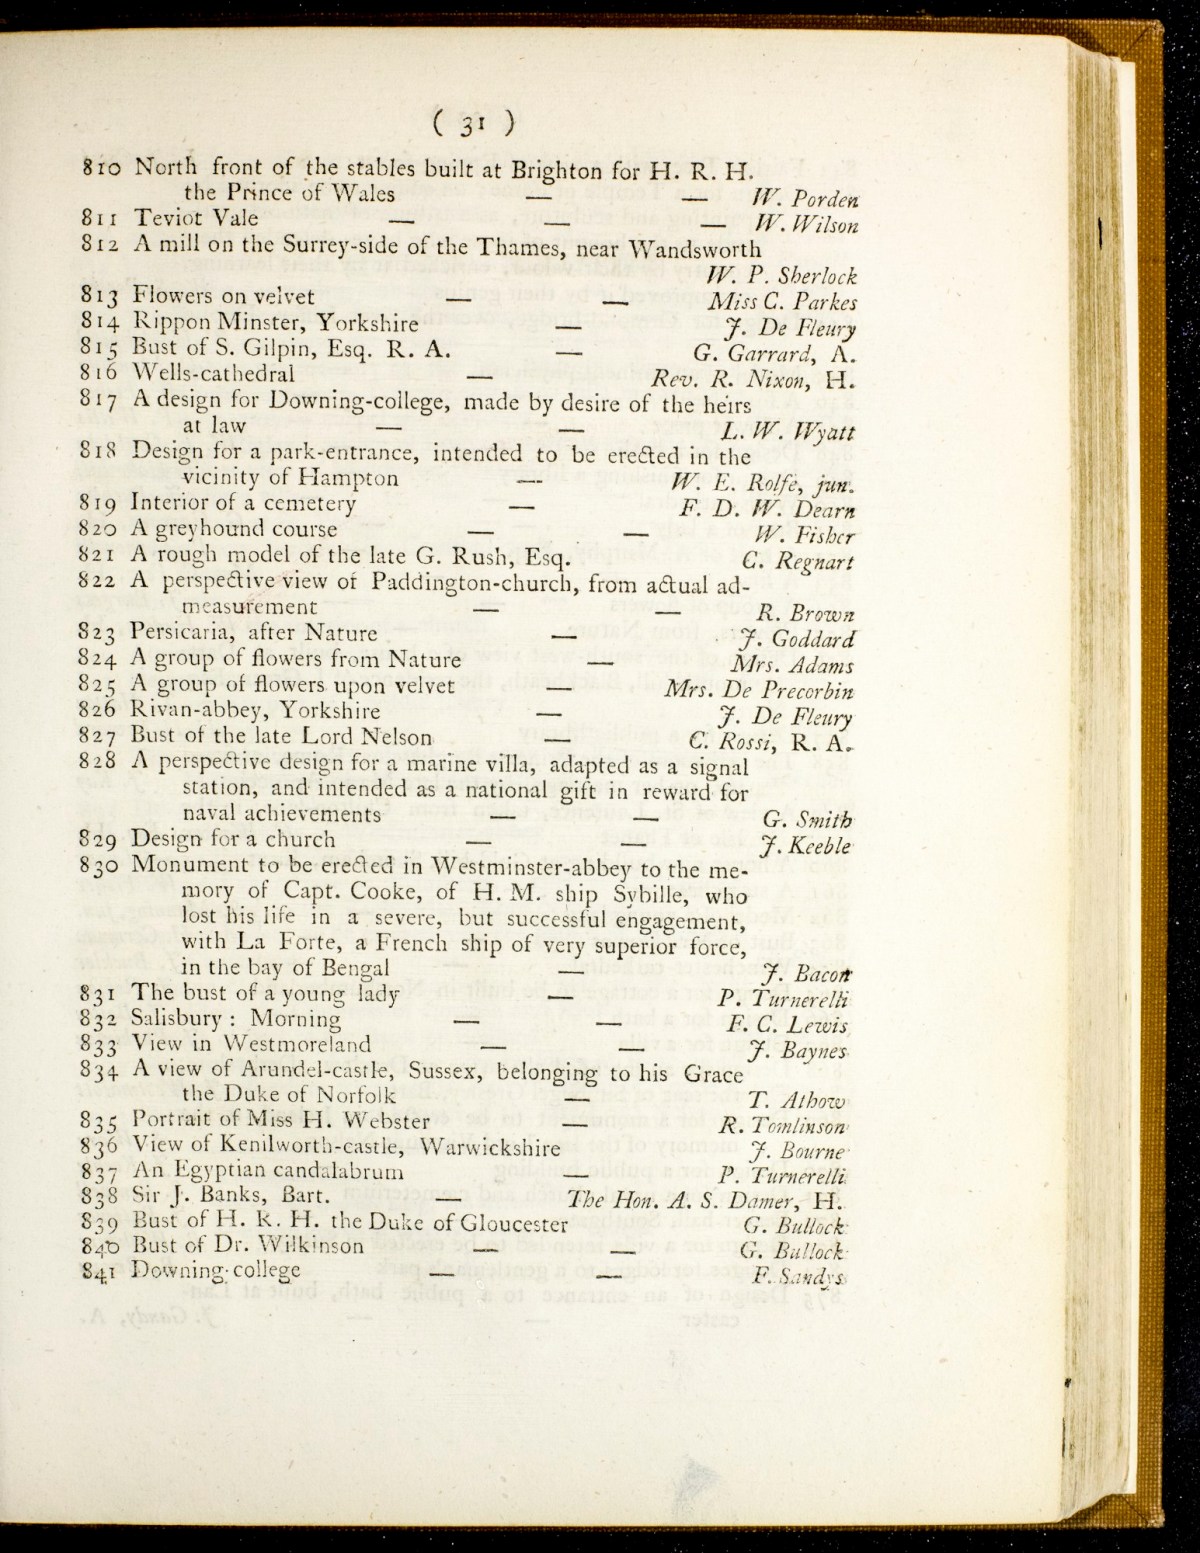 ( 31 )
810 North front of the stables built at Brighton for H. R. H.
the Prince of Wales — — W. Porden
811 Teviot Vale — — — W. Wilson
812 A mill on the Surrey-side of the Thames, near Wandsworth
W. P. Sherlock
813 Flowers on velvet — — Miss C. Parkes
814 Rippon Minster, Yorkshire — J. De Fleury
815 Bust of S. Gilpin, Esq. R. A. — G. Garrard, A.
816 Wells-cathedral — Rev. R. Nixon, H.
817 A design for Downing-college, made by desire of the heirs
at law — — L. W. Wyatt
818 Design for a park-entrance, intended to be erected in the
vicinity of Hampton — W. E. Rolfe, jun.
819 Interior of a cemetery — F. D. W. Dearn
820 A greyhound course — — W. Fisher
821 A rough model of the late G. Rush, Esq. C. Regnart
822 A perspective view of Paddington-church, from actual ad-
measurement — — R. Brown
823 Persicaria, after Nature — J. Goddard
824 A group of flowers from Nature — Mrs. Adams
825 A group of flowers upon velvet — Mrs. De Precorbin
826 Rivan-abbey, Yorkshire — J. De Fleury
827 Bust of the late Lord Nelson — C. Rossi, R. A.
828 A perspective design for a marine villa, adapted as a signal
station, and intended as a national gift in reward for
naval achievements — — G. Smith
829 Design for a church — — J. Keeble
830 Monument to be erected in Westminster-abbey to the me-
mory of Capt. Cooke, of H. M. ship Sybille, who
lost his life in a severe, but successful engagement,
with La Forte, a French ship of very superior force,
in the bay of Bengal — J. Bacon
831 The bust of a young lady — P. Turnerelli
832 Salisbury : Morning — — F. C. Lewis
833 View in Westmoreland — — J. Baynes
834 A view of Arundel-castle, Sussex, belonging to his Grace
the Duke of Norfolk — T. Athow
835 Portrait of Miss H. Webster — R. Tomlinson
836 View of Kenilworth-castle, Warwickshire J. Bourne
837 An Egyptian candalabrum — P. Turnerelli
838 Sir J. Banks, Bart. — The Hon. A. S. Damer, H.
839 Bust of H. R. H. the Duke of Gloucester G. Bullock
840 Bust of Dr. Wilkinson — — G. Bullock
841 Downing-college — — F. Sandys